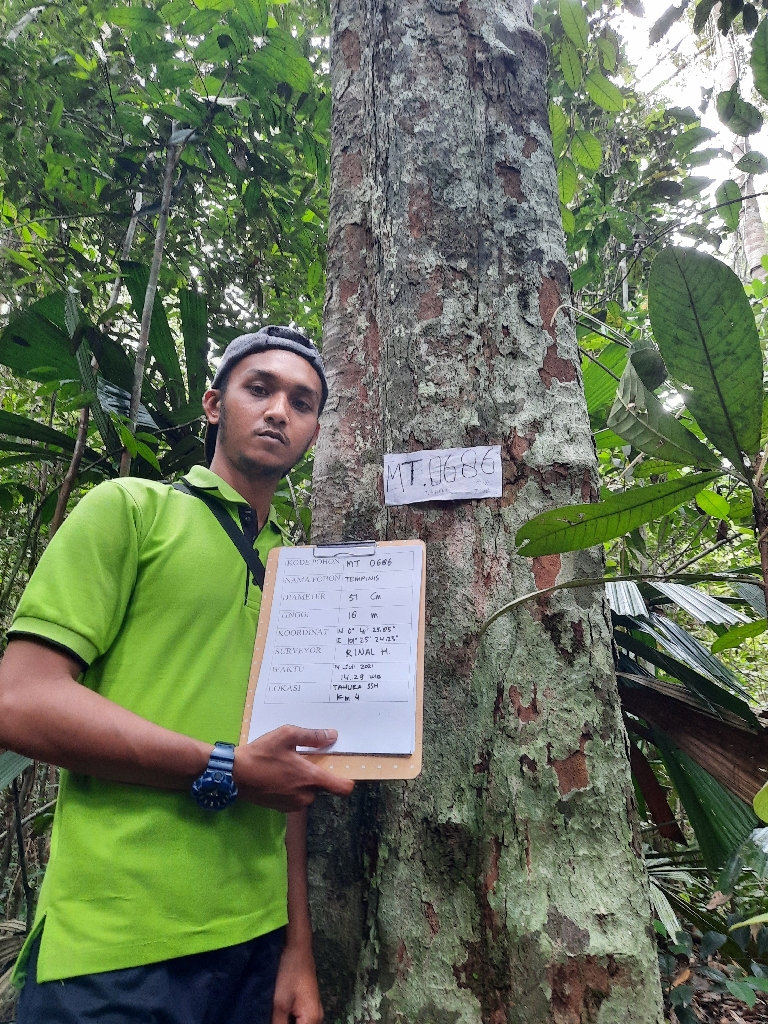 MT.0686
KODE POHON MT 0686
NAMA POHON TEMPINIS
DIAMETER 51 Cm
TINGGI 16 m
KOORDINAT N 0° 41' 25.85"
E 101° 25' 24.23"
SURVEYOR RINAL H.
WAKTU 14 Juli 2021
14.29 WIB
LOKASI TAHURA SSH
Km 4